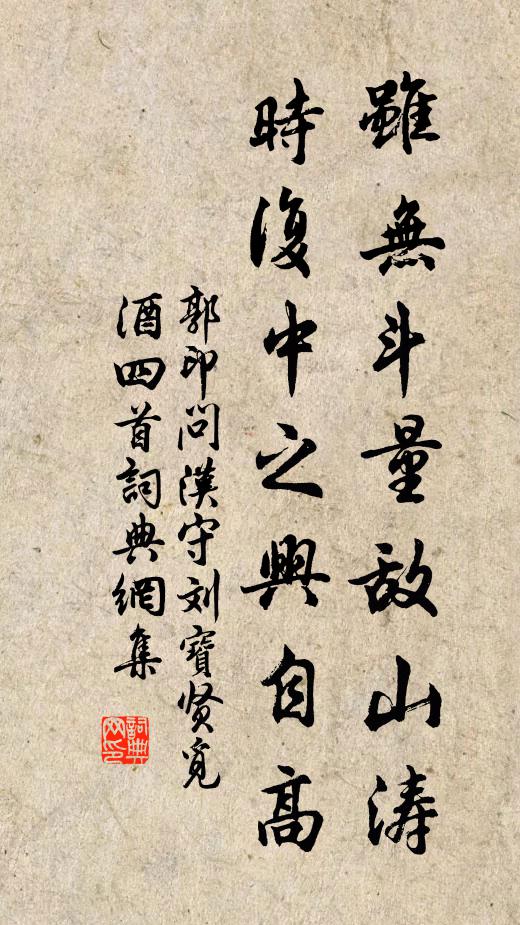 雖無斗量敵山涛
時復中之興自高
郭印問漢守刘寶贤覓
酒四首詞典網集
詞典
网印